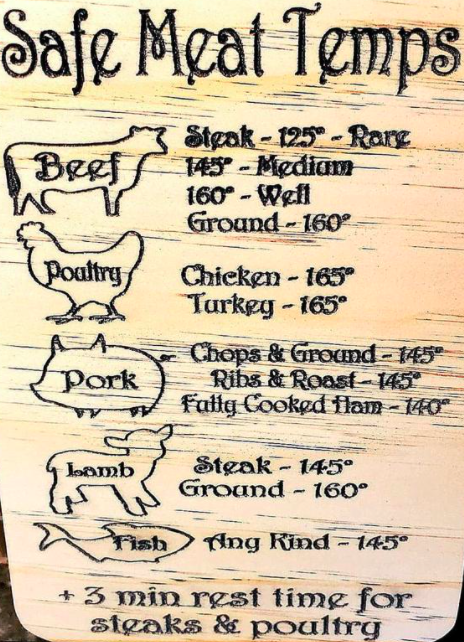 Safe Meat Temps
Beef
Steak - 125° - Rare
145° - Medium
160° - Well
Ground - 160°
Poultry
Chicken - 165°
Turkey - 165°
Pork
Chops & Ground - 145°
Ribs & Roast - 145°
Fully Cooked Ham - 140°
Lamb
Steak - 145°
Ground - 160°
Fish
Any Kind - 145°
+ 3 min rest time for
steaks & poultry